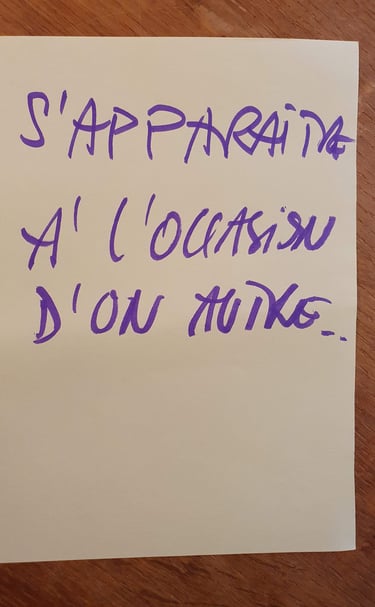 S'APPARAÎTRE
A' L'OCCASION
D'ON AUTRE...